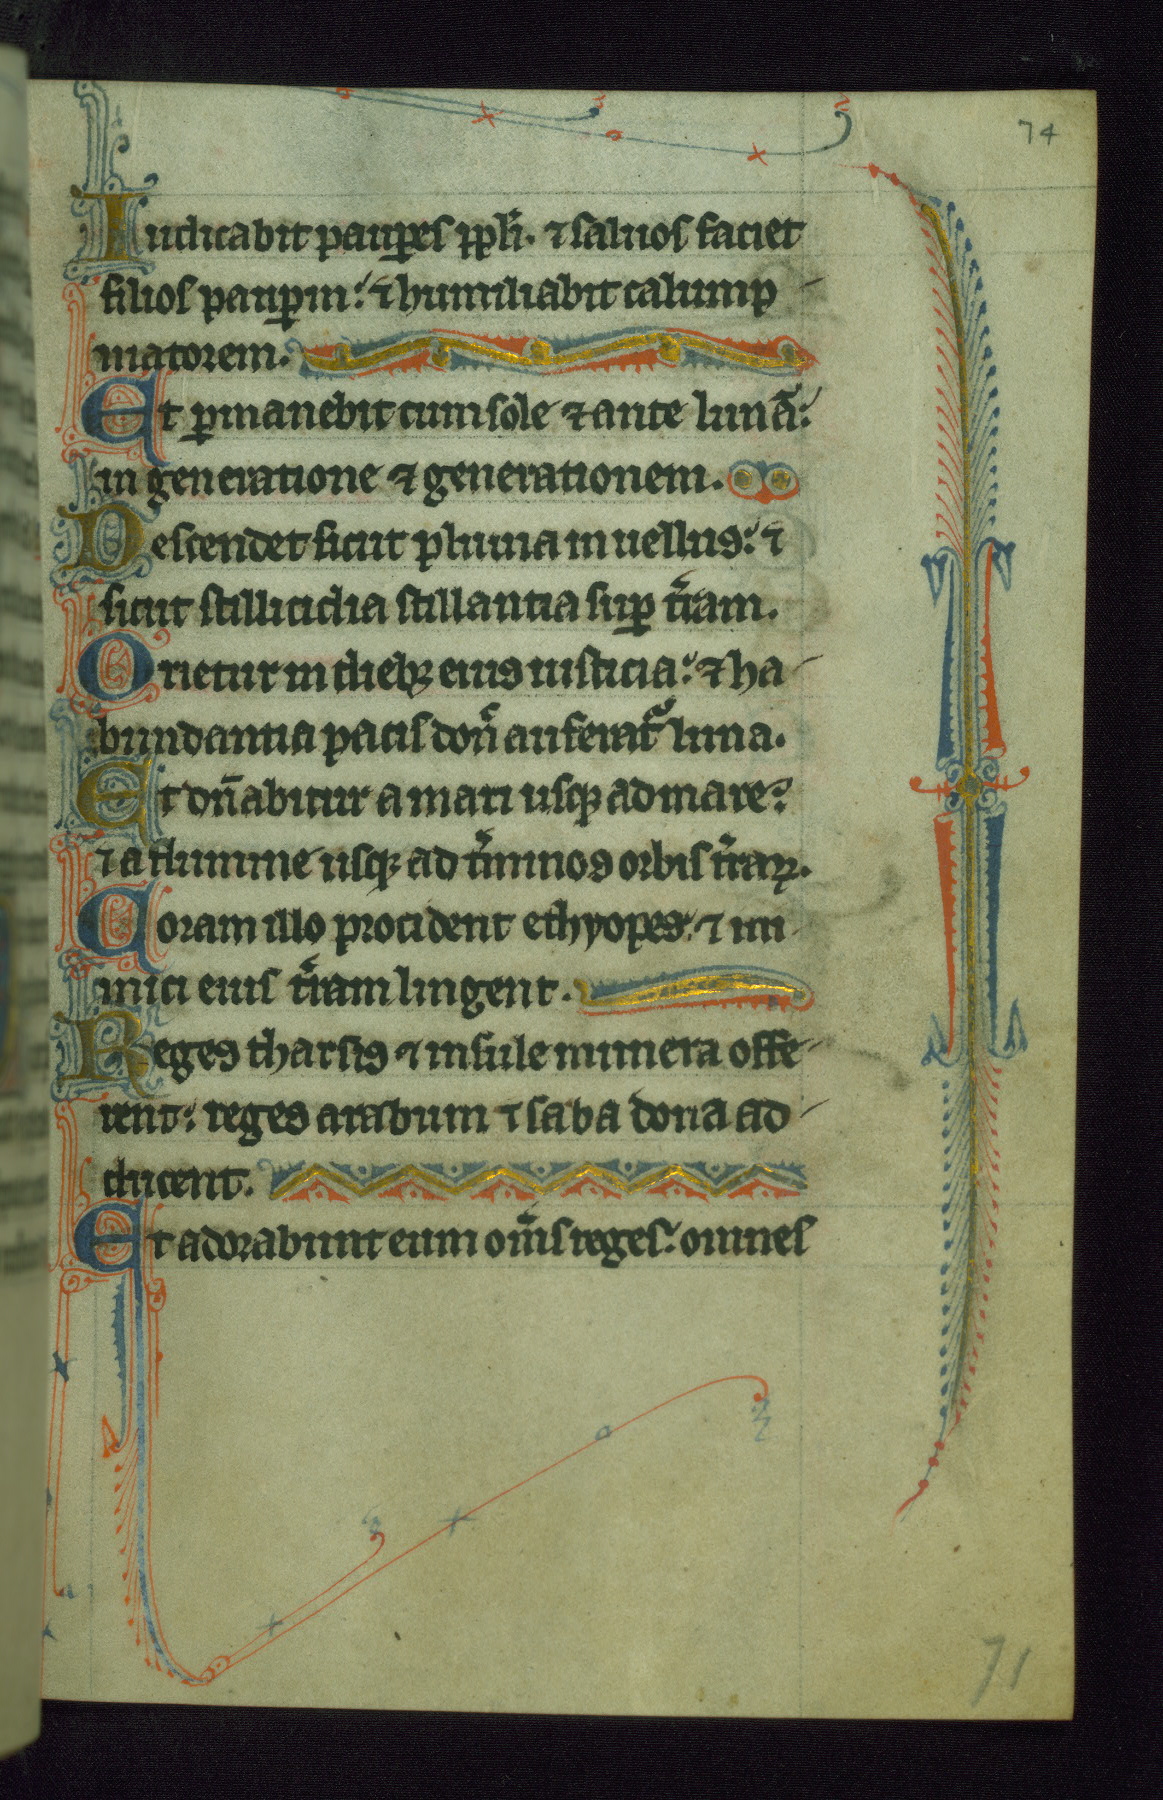 74
Iudicabit paup̲es pp̲li. ⁊ saluos faciet
filios paup̲m: ⁊ humiliabit calump
niatorem.
Et p̲manebit cum sole ⁊ ante lunā:
in generatione ⁊ generationem.
Descendet sicut pluuia in uellus: ⁊
sicut stillicidia stillantia sup̲ t̾ram.
Orietur in dieb; eius iusticia: ⁊ ha
bundantia pacis don̾ auferat᷑ luna.
Et dn̄abitur a mari usq; ad mare:
⁊ a flumine usq; ad t̾minos orbis t̾raꝝ.
Coram illo procident ethyopes: ⁊ ini
mici eius t̾ram lingent.
Reges tharsis ⁊ insule munera offe
rent: reges arabum ⁊ saba dona ad
ducent.
Et adorabunt eum om̄s reges: omnes
71